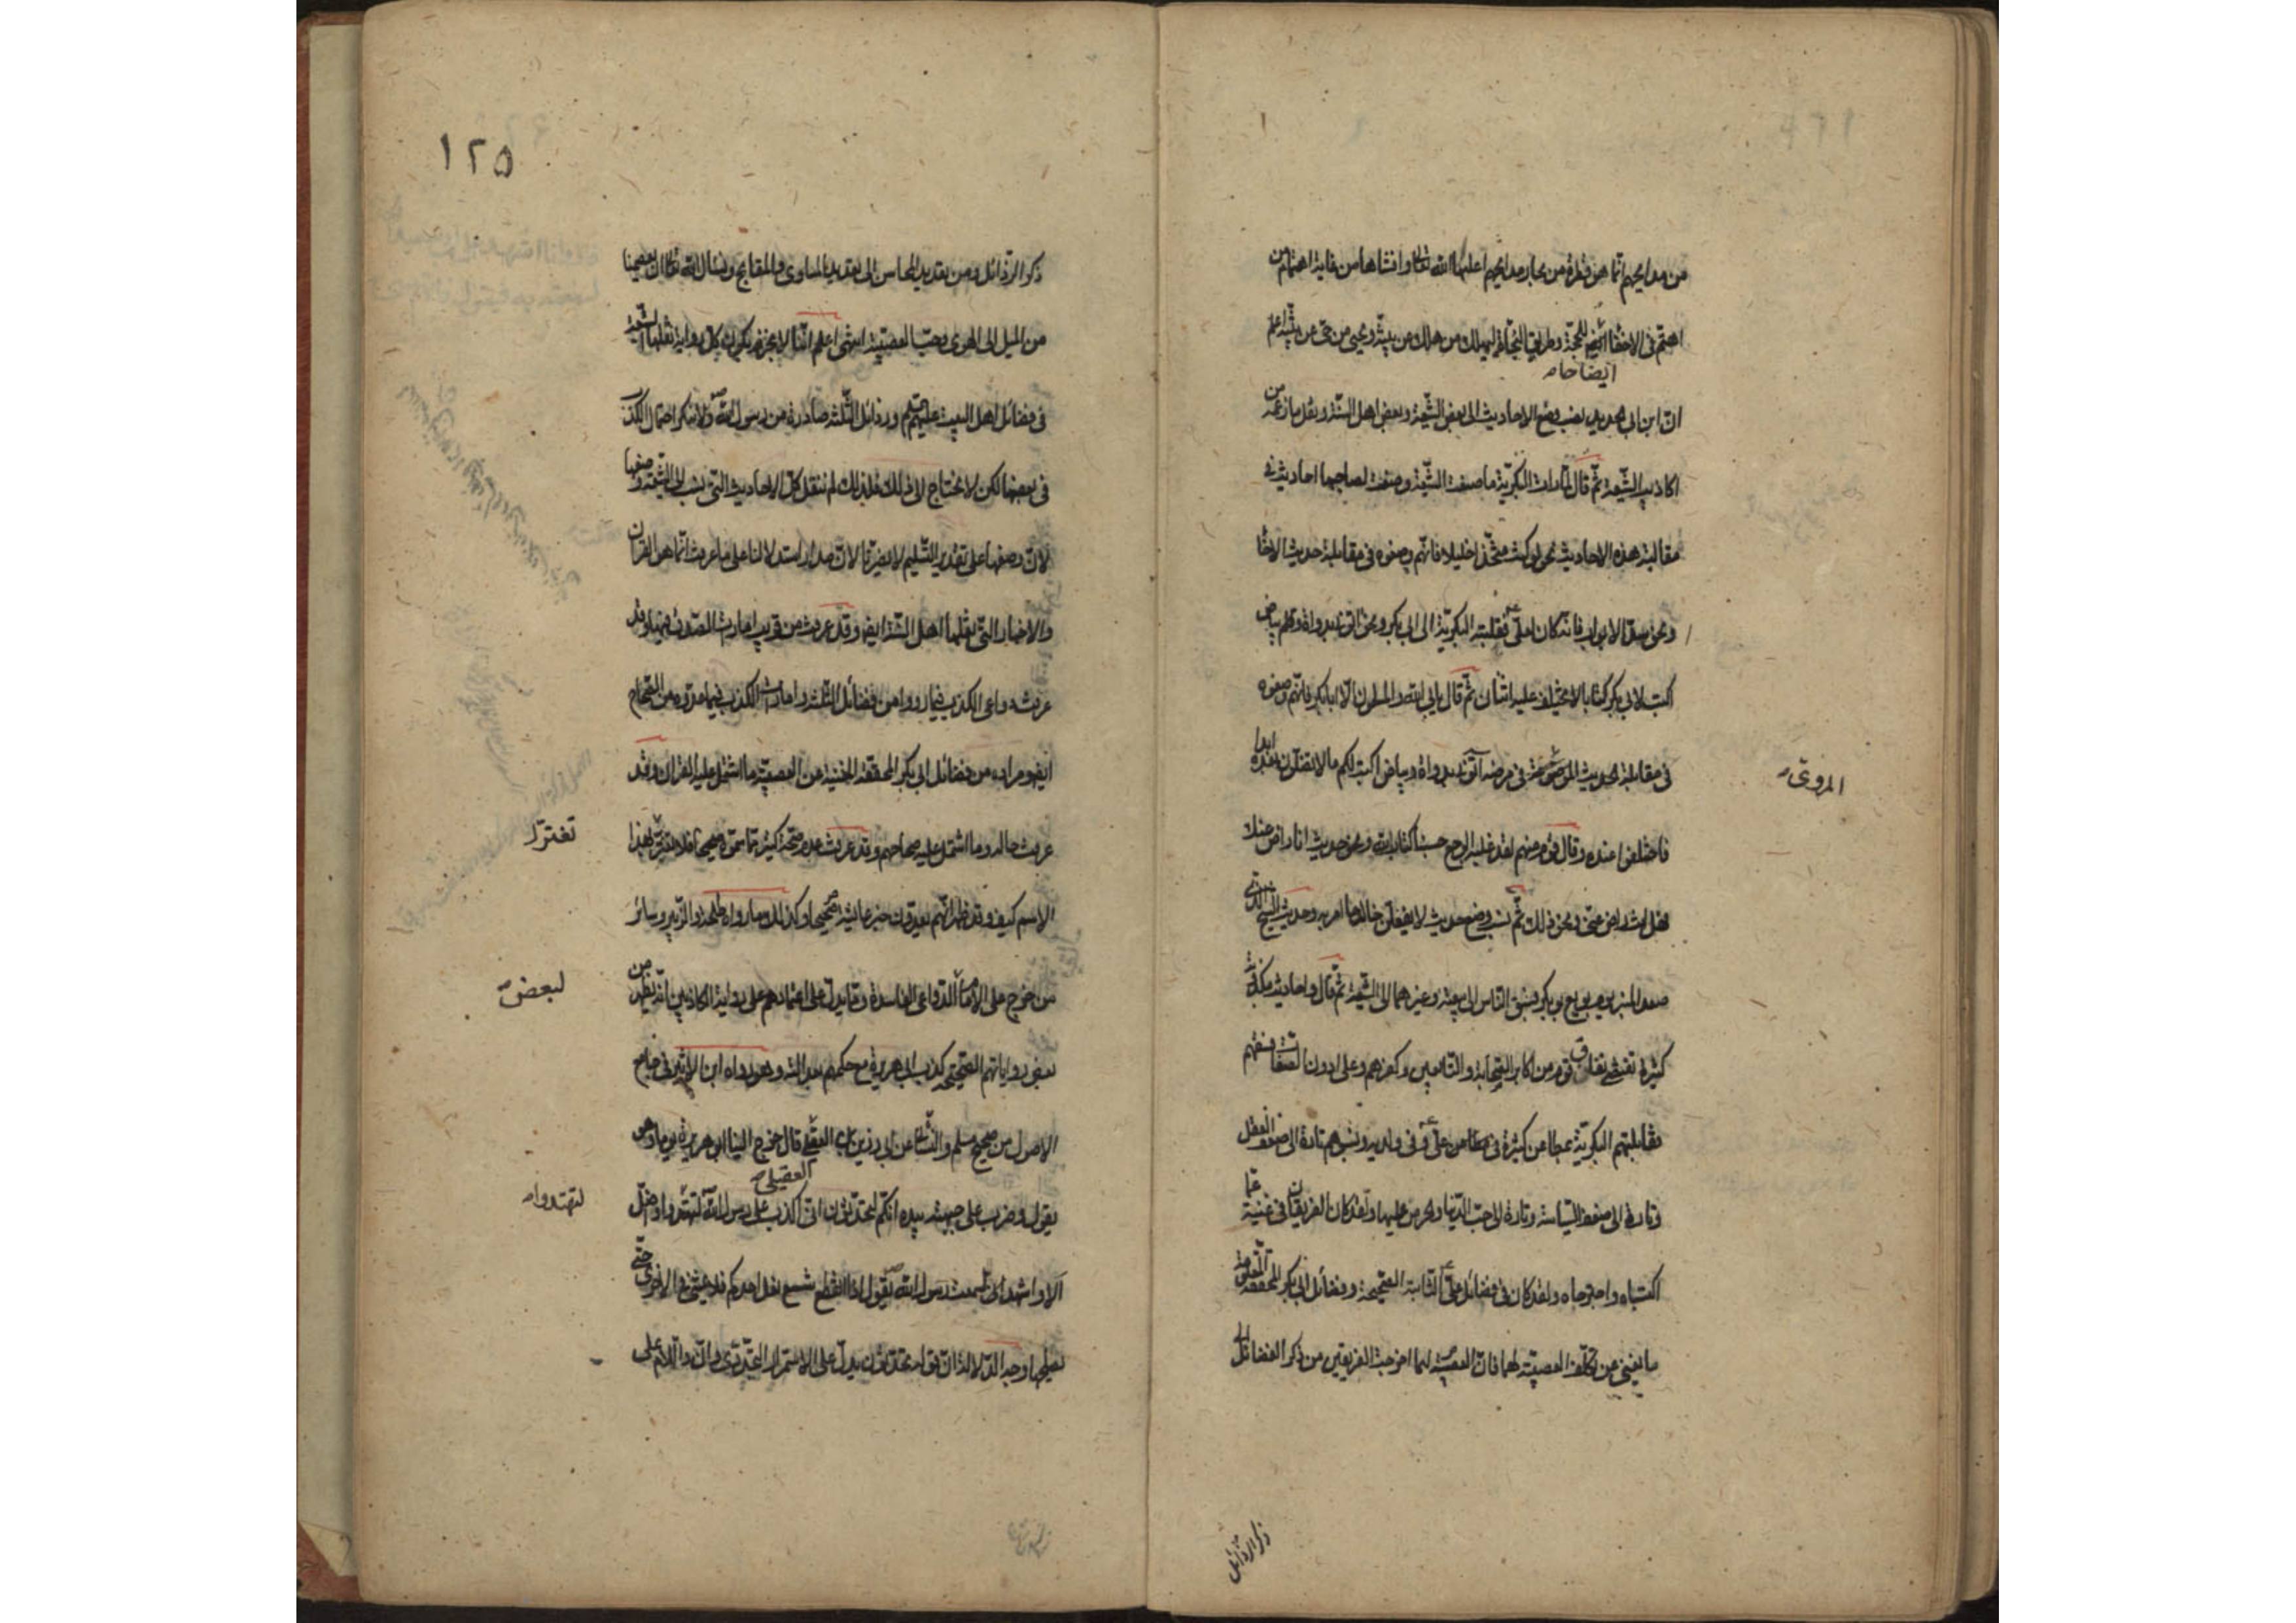 من مدايحهم انما هي قطرة من بحار مدايحهم اعلنها الله تعالى وافشاها من غاية اهتمام من
اهتم في الاخفاء للحجة وطريق النجاة ليهلك من هلك عن بينة ويحيى من حي عن بينة اعلم
ايضاحا
ان ابن ابي الحديد نسب وضع الاحاديث الى بعض الشيعة وبعض اهل السنة ونقل ما زعمه من
اكاذيب الشيعة ثم قال لما رات البكرية ما صنعت الشيعة وضعت لصاحبها احاديث في
مقابلة هذه الاحاديث نحو لو كنت متخذا خليلا فانهم وضعوه في مقابلة حديث الاخاء
ونحو سد الابواب فانه كان لعلي فقلبته البكرية الى ابي بكر ونحو ايتوني بدواة وبياض
اكتب لابي بكر كتابا لا يختلف عليه اثنان ثم قال يابى الله والمسلمون الا ابا بكر فانهم وضعوه
في مقابلة الحديث المروي عنه في مرضه ايتوني بدواة وبياض اكتب لكم ما لا تضلون بعده ابدا
المروي
فاختلفوا عنده وقال قوم منهم لقد غلبه الوجع حسبنا كتاب الله ونحو حديث انا راض عنك
فهل انت راض عني ونحو ذلك ثم نسب وضع حديث لا يفعلن خالد ما امر به وحديث الشيخ الذي
صعد المنبر يوم بويع ابو بكر فسبق الناس الى بيعته وغيرهما الى الشيعة ثم قال واحاديث مكذوبة
كثيرة تقتضي نفاق قوم من اكابر الصحابة والتابعين وكفرهم وعلى ادون الطبقات فسقهم
فقابلتهم البكرية بمطاعن كثيرة في علي وفي ولديه ونسبوهم تارة الى ضعف العقل
وتارة الى ضعف السياسة وتارة الى حب الدنيا والحرص عليها ولقد كان الفريقان في غنية عما
اكتسباه واجترحاه ولقد كان في فضائل علي الثابتة الصحيحة وفضائل ابي بكر المحققة المعلومة
ما يغني عن تكلف العصبية لهما فان العصبية لهما اخرجت الفريقين من ذكر الفضائل الى
ذكر الرذائل
١٢٥
ذكر الرذائل ومن تعديد المحاسن الى تعديد المساوي والمقابح ونسال الله تعالى ان يعصمنا
من الميل الى الهوى وحب العصبية انتهى اعلم اننا لا نجزم بكون كل رواية نقلها الشيعة
في فضائل اهل البيت عليهم ورذائل الثلثة صادرة من رسول الله ولا ننكر احتمال الكذب
في بعضها لكن لا نحتاج الى ذلك فلذلك لم ننقل كل الاحاديث التي نسب الى الشيعة وضعها
لان وضعها على تقدير التسليم لا يضرنا لان مدار استدلالنا على ما عرفت انما هو القران
والاخبار التي نقلها اهل السنة ايضا وقد عرفت من قريب امارات الصدق فيها وقد
عرفت دواعي الكذب فيما رووا من فضائل الثلثة وامارات الكذب فيما عدوه من الصحاح
ايضا ومراده من فضائل ابي بكر المحققة المغنية عن العصبية ما اشتمل عليه القران وقد
عرفت حاله وما اشتمل عليه صحاحهم وقد عرفت عدم صحة كثير مما سموه صحيحا فلا تغتر بهذا
تغتر
الاسم كيف وقد ظهر انهم يعدون خبر عايشة صحيحا وكذلك ما رواه طلحة والزبير وسائر
من خرج على الامام للدواعي الفاسدة ومما يدل على اعتمادهم على رواية الكاذبين انه يظهر من
لبعض
بعض رواياتهم الصحيحة كذب ابي هريرة مع حكمهم بعدالته وهو رواه ابن الاثير في جامع
الاصول من صحيح مسلم والنسائي عن ابي رزين قال خرج الينا ابو هريرة يوما وهو
العقيلي
يقول وضرب على جبهته بيده انكم تحدثون اني اكذب على رسول الله لتهتدوا واضل
لتهتدوا
الا واشهد اني لسمعت رسول الله يقول اذا انقطع شسع نعل احدكم فلا يمشي في الاخرى حتى
يصلحها وجه الدلالة ان قوله تحدثون يدل على الاستمرار التجددي وان واللام على